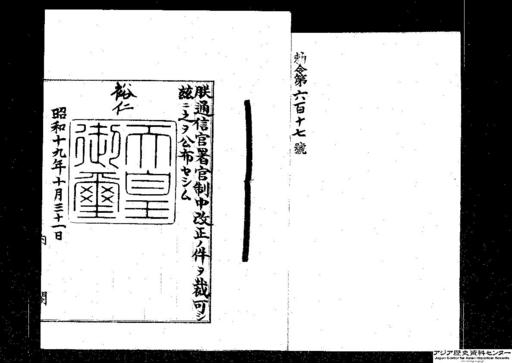 勅令第六百十七號
朕通信官署官制中改正ノ件ヲ裁可シ
茲ニ之ヲ公布セシム
裕仁
天皇御璽
昭和十九年十月三十一日
内閣
アジア歴史資料センター
Japan Center for Asian Historical Records